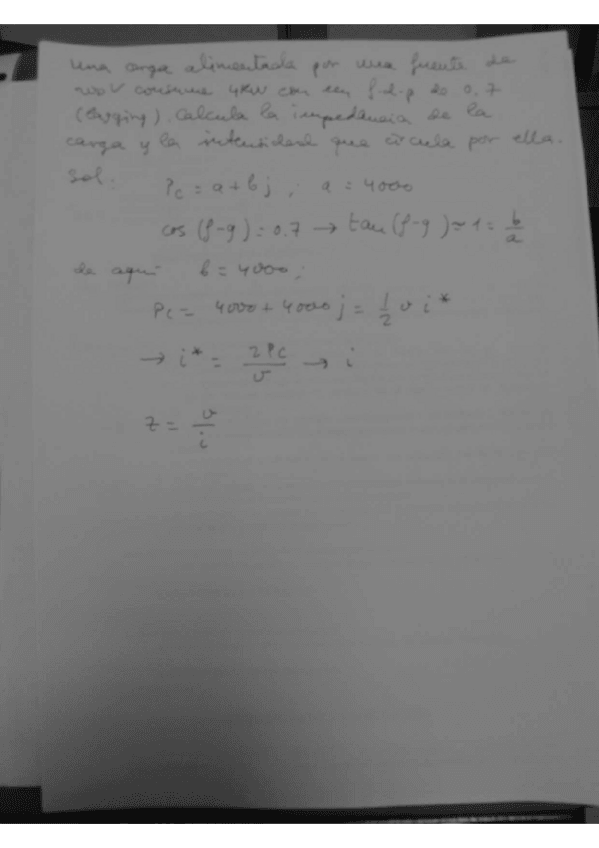 Una carga alimentada por una fuente de
V consume 4KW con un f.d.p de 0.7
. Calcula la impedancia de la
carga y la intensidad que circula por ella.
Sol:
Pc = a + b j ; a = 4000
cos (φ-φ) = 0.7 → tan (φ-φ) ≈ 1 = b/a
de aquí b = 4000 ;
Pc = 4000 + 4000 j = 1/2 v i*
→ i* = 2Pc/v → i
z = v/i